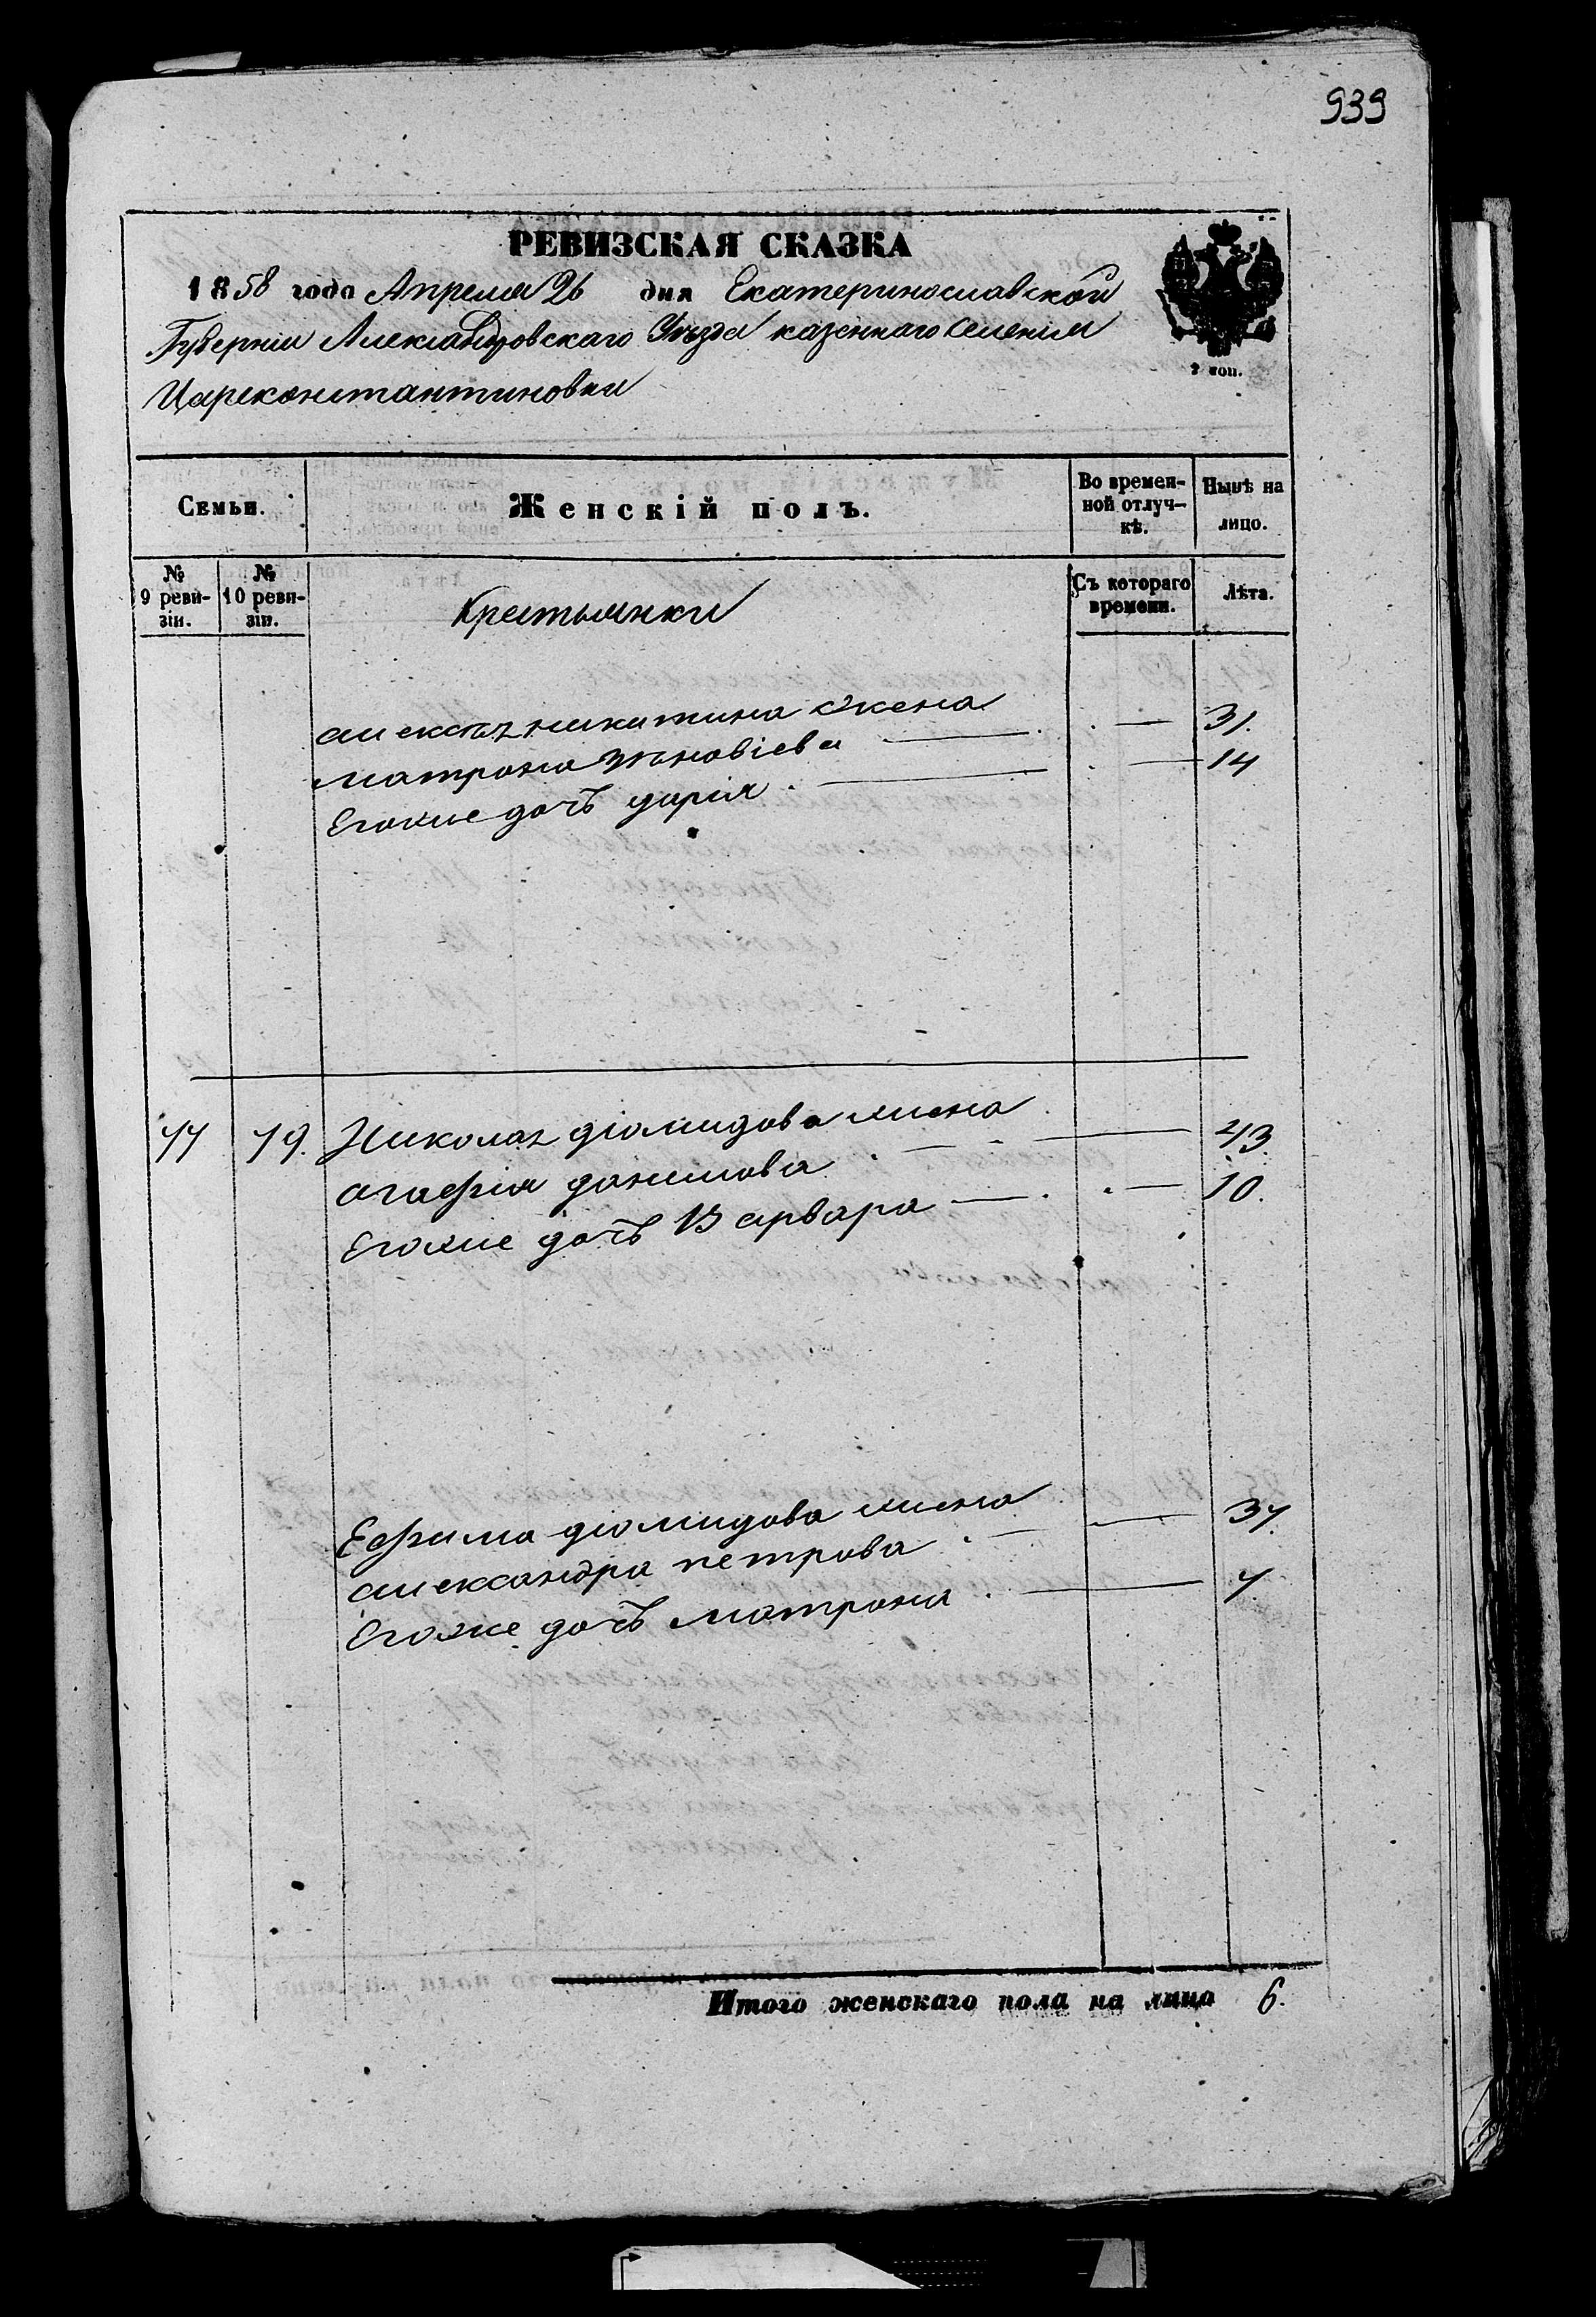 939
РЕВИЗСКАЯ СКАЗКА
1858 года Апреля 26 дня Екатеринославской
Губерніи Александровскаго Уѣзда казеннаго селенія
Цареконстантиновки
2 коп.
Семьи. Женскій полъ. Во времен-ной отлуч-кѣ. Нынѣ на лицо.
№ 9 реви-зіи. № 10 реви-зіи. Крестьянки Съ котораго времени. Лѣта.
никитина жена
матрона зѣновіева 31.
Егоже дочь дарія 14
77 79. Николая діомидова жена
агафія данилова 43.
Егоже дочь Варвара 10.
Ефима діомидова жена
александра петрова 37.
Егоже дочь матрона 7.
Итого женскаго пола на лицо 6.